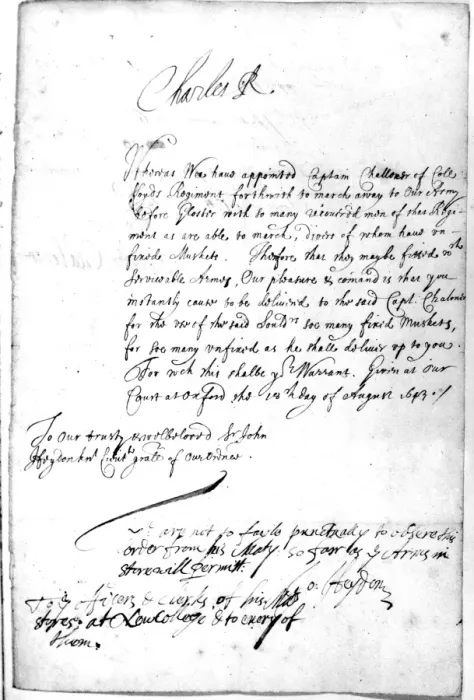 Charles R.
Whereas Wee have appointed Captain Challoner of Coll
Lloyds Regiment forthwith to march away to Our Army
before Gloster with so many recovered men of that Regi-
ment as are able to march, divers of whom have un-
fixed Muskets. Therefore that they maybe fitted wth
Serviceable Armes, Our pleasure & comand is that you
instantly cause to be delivered to the said Capt. Chaloner
for the use of the said Souldrs soe many fixed Muskets,
for soe many unfixed as he shall deliver up to you.
For wch this shalbe yor Warrant. Given at our
Court at Oxford the day of August 1643.
To Our trusty & welbeloved Sr John
Heydon knt Lieutent grall of Our Ordnce.
are not to fayle punctually to observe this
order from his Maty. so farr as ye Armes in
store will permitt.
Jo: Heydon
To ye officers & Clerks of his Mats
stores at & to every of
them.